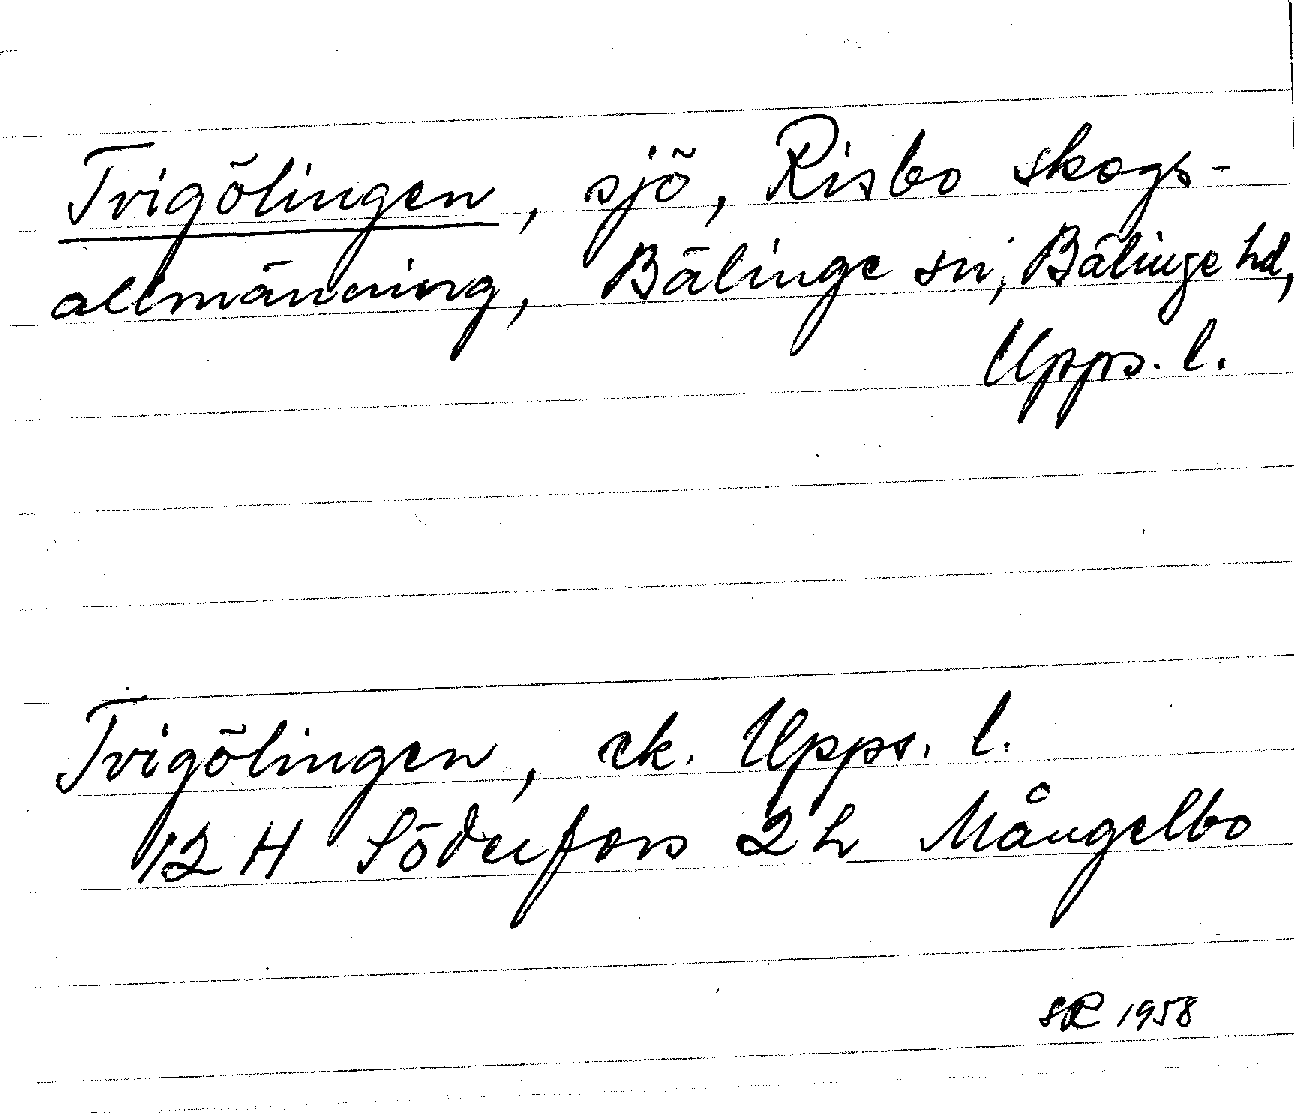 Trigölingen, sjö, Risbo skogs-
allmänning, Bälinge sn, Bälinge hd,
Upps. l.
Trigölingen, ek. Upps. l.
12 H Söderfors 2 h Mångelbo
SR 1958